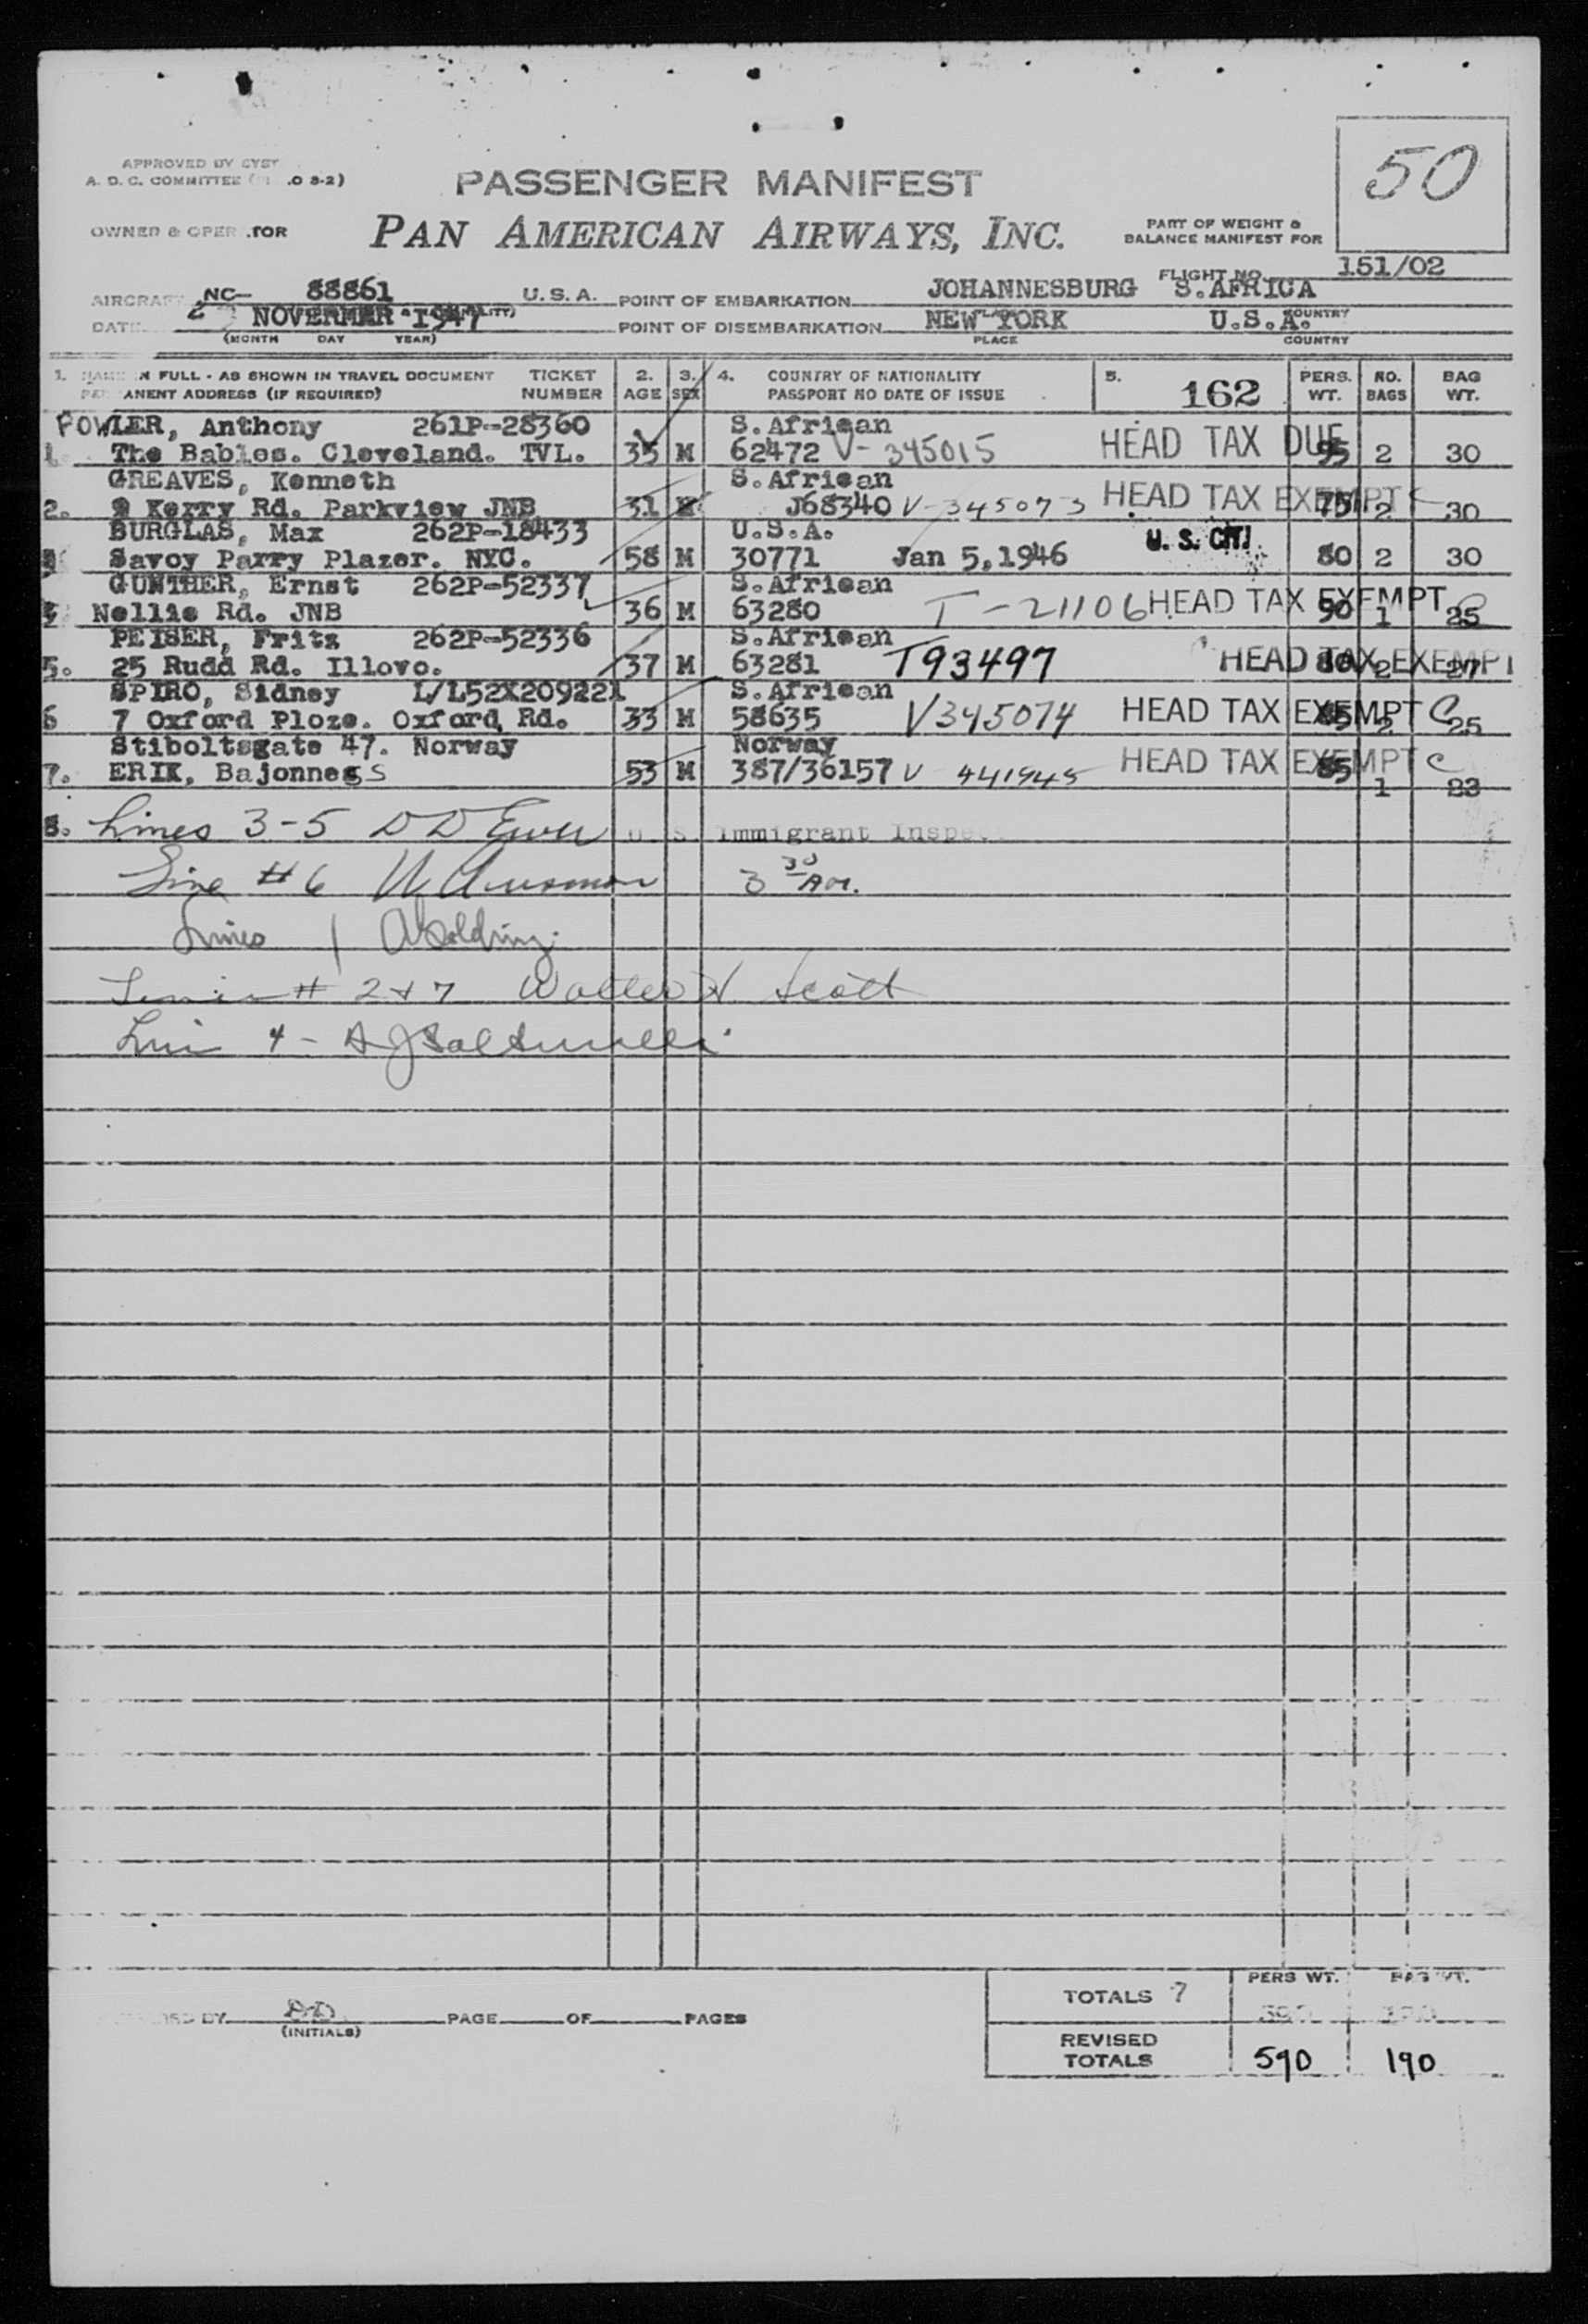 50
APPROVED BY
A. D. C. COMMITTEE
PASSENGER MANIFEST
OWNED & OPER TOR
PAN AMERICAN AIRWAYS, INC.
PART OF WEIGHT &
BALANCE MANIFEST FOR
FLIGHT NO. 151/02
AIRCRAFT NC- 88861 U.S.A. POINT OF EMBARKATION JOHANNESBURG S.AFRICA
DATE NOVERMAR 1947 POINT OF DISEMBARKATION NEW YORK U.S.A.
(MONTH DAY YEAR) PLACE COUNTRY
1. NAME IN FULL - AS SHOWN IN TRAVEL DOCUMENT TICKET 2. 3. 4. COUNTRY OF NATIONALITY 5. 162 PERS. NO. BAG
ANENT ADDRESS (IF REQUIRED) NUMBER AGE SEX PASSPORT NO DATE OF ISSUE WT. BAGS WT.
FOWLER, Anthony 261P-28360 S.African
1 The Bables. Cleveland. TVL. 35 M 62472 V- 345015 HEAD TAX DUE 95 2 30
GREAVES, Kenneth S.African
2. 9 Kerry Rd. Parkview JNB 31 M J68340 V-345073 HEAD TAX EXEMPT 75 2 30
BURGLAS, Max 262P-18433 U.S.A.
Savoy Parry Plazer. NYC. 58 M 30771 Jan 5,1946 U. S. CIT. 80 2 30
GUNTHER, Ernst 262P-52337 S.African
Nellie Rd. JNB 36 M 63280 T-21106 HEAD TAX EXEMPT 90 1 25
PEISER, Fritz 262P-52336 S.African
5. 25 Rudd Rd. Illovo. 37 M 63281 T93497 HEAD TAX EXEMPT 80 2 27
SPIRO, Sidney L/L52X209221 S.African
6 7 Oxford Ploze. Oxford Rd. 33 M 58635 V345074 HEAD TAX EXEMPT C 85 2 25
Stiboltsgate 47. Norway Norway
7. ERIK, Bajonness 53 M 387/36157 V 441945 HEAD TAX EXEMPT C 85 1 23
8. Lines 3-5 U. S. Immigrant Inspec
Line #6 3 30 AM.
Lines 1 A Golding.
# 2 + 7 Walter H Scott
4 -
TOTALS 7 PERS WT. BAG WT.
BY (INITIALS) PAGE OF PAGES
REVISED
TOTALS 590 190